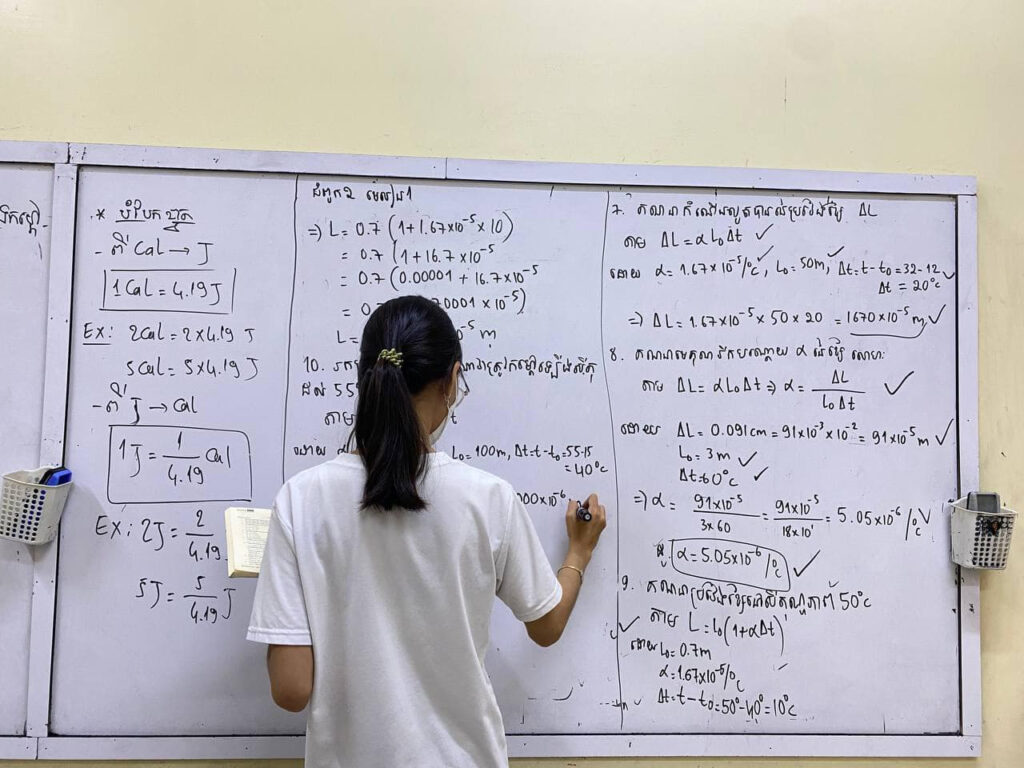 * បំប្លែកខ្នាត
- ពី Cal → J
1 Cal = 4.19 J
Ex: 2Cal = 2 x 4.19 J
5Cal = 5 x 4.19 J
- ពី J → Cal
1J = 1/4.19 Cal
Ex: 2J = 2/4.19
5J = 5/4.19 J
ជំពូក2 មេរៀន1
=) L = 0.7 (1 + 1.67 x10⁻⁵ x 10)
= 0.7 (1 + 16.7 x10⁻⁵
= 0.7 (0.00001 + 16.7x10⁻⁵
= 0001 x 10⁻⁵)
L = m
10.
ដល់ 55
តាម
ដោយ L₀ = 100m, Δt = t - t₀ = 55-15
= 40°C
000x10⁻⁶
7. គណនាកំណើន ΔL
តាម ΔL = αL₀Δt ✓
ដោយ α = 1.67 x 10⁻⁵/°C ✓, L₀ = 50m ✓, Δt = t - t₀ = 32 - 12 ✓
Δt = 20°C
=) ΔL = 1.67 x 10⁻⁵ x 50 x 20 = 1670 x10⁻⁵ m ✓
8. គណនាមេគុណរីកបណ្តោយ α នៃ លោហៈ
តាម ΔL = αL₀Δt => α = ΔL/L₀Δt ✓
ដោយ ΔL = 0.091cm = 91x10⁻³ x 10⁻² = 91x10⁻⁵ m ✓
L₀ = 3 m ✓
Δt = 60°C ✓
=) α = 91x10⁻⁵/3x60 = 91x10⁻⁵/18x10¹ = 5.05x10⁻⁶ /°C ✓
α = 5.05x10⁻⁶ /°C ✓
9. គណនាប្រវែង សីតុណ្ហភាព 50°C
✓ តាម L = L₀(1+αΔt)
ដោយ L₀ = 0.7m
α = 1.67x10⁻⁵/°C
Δt = t - t₀ = 50° - 40° = 10°C